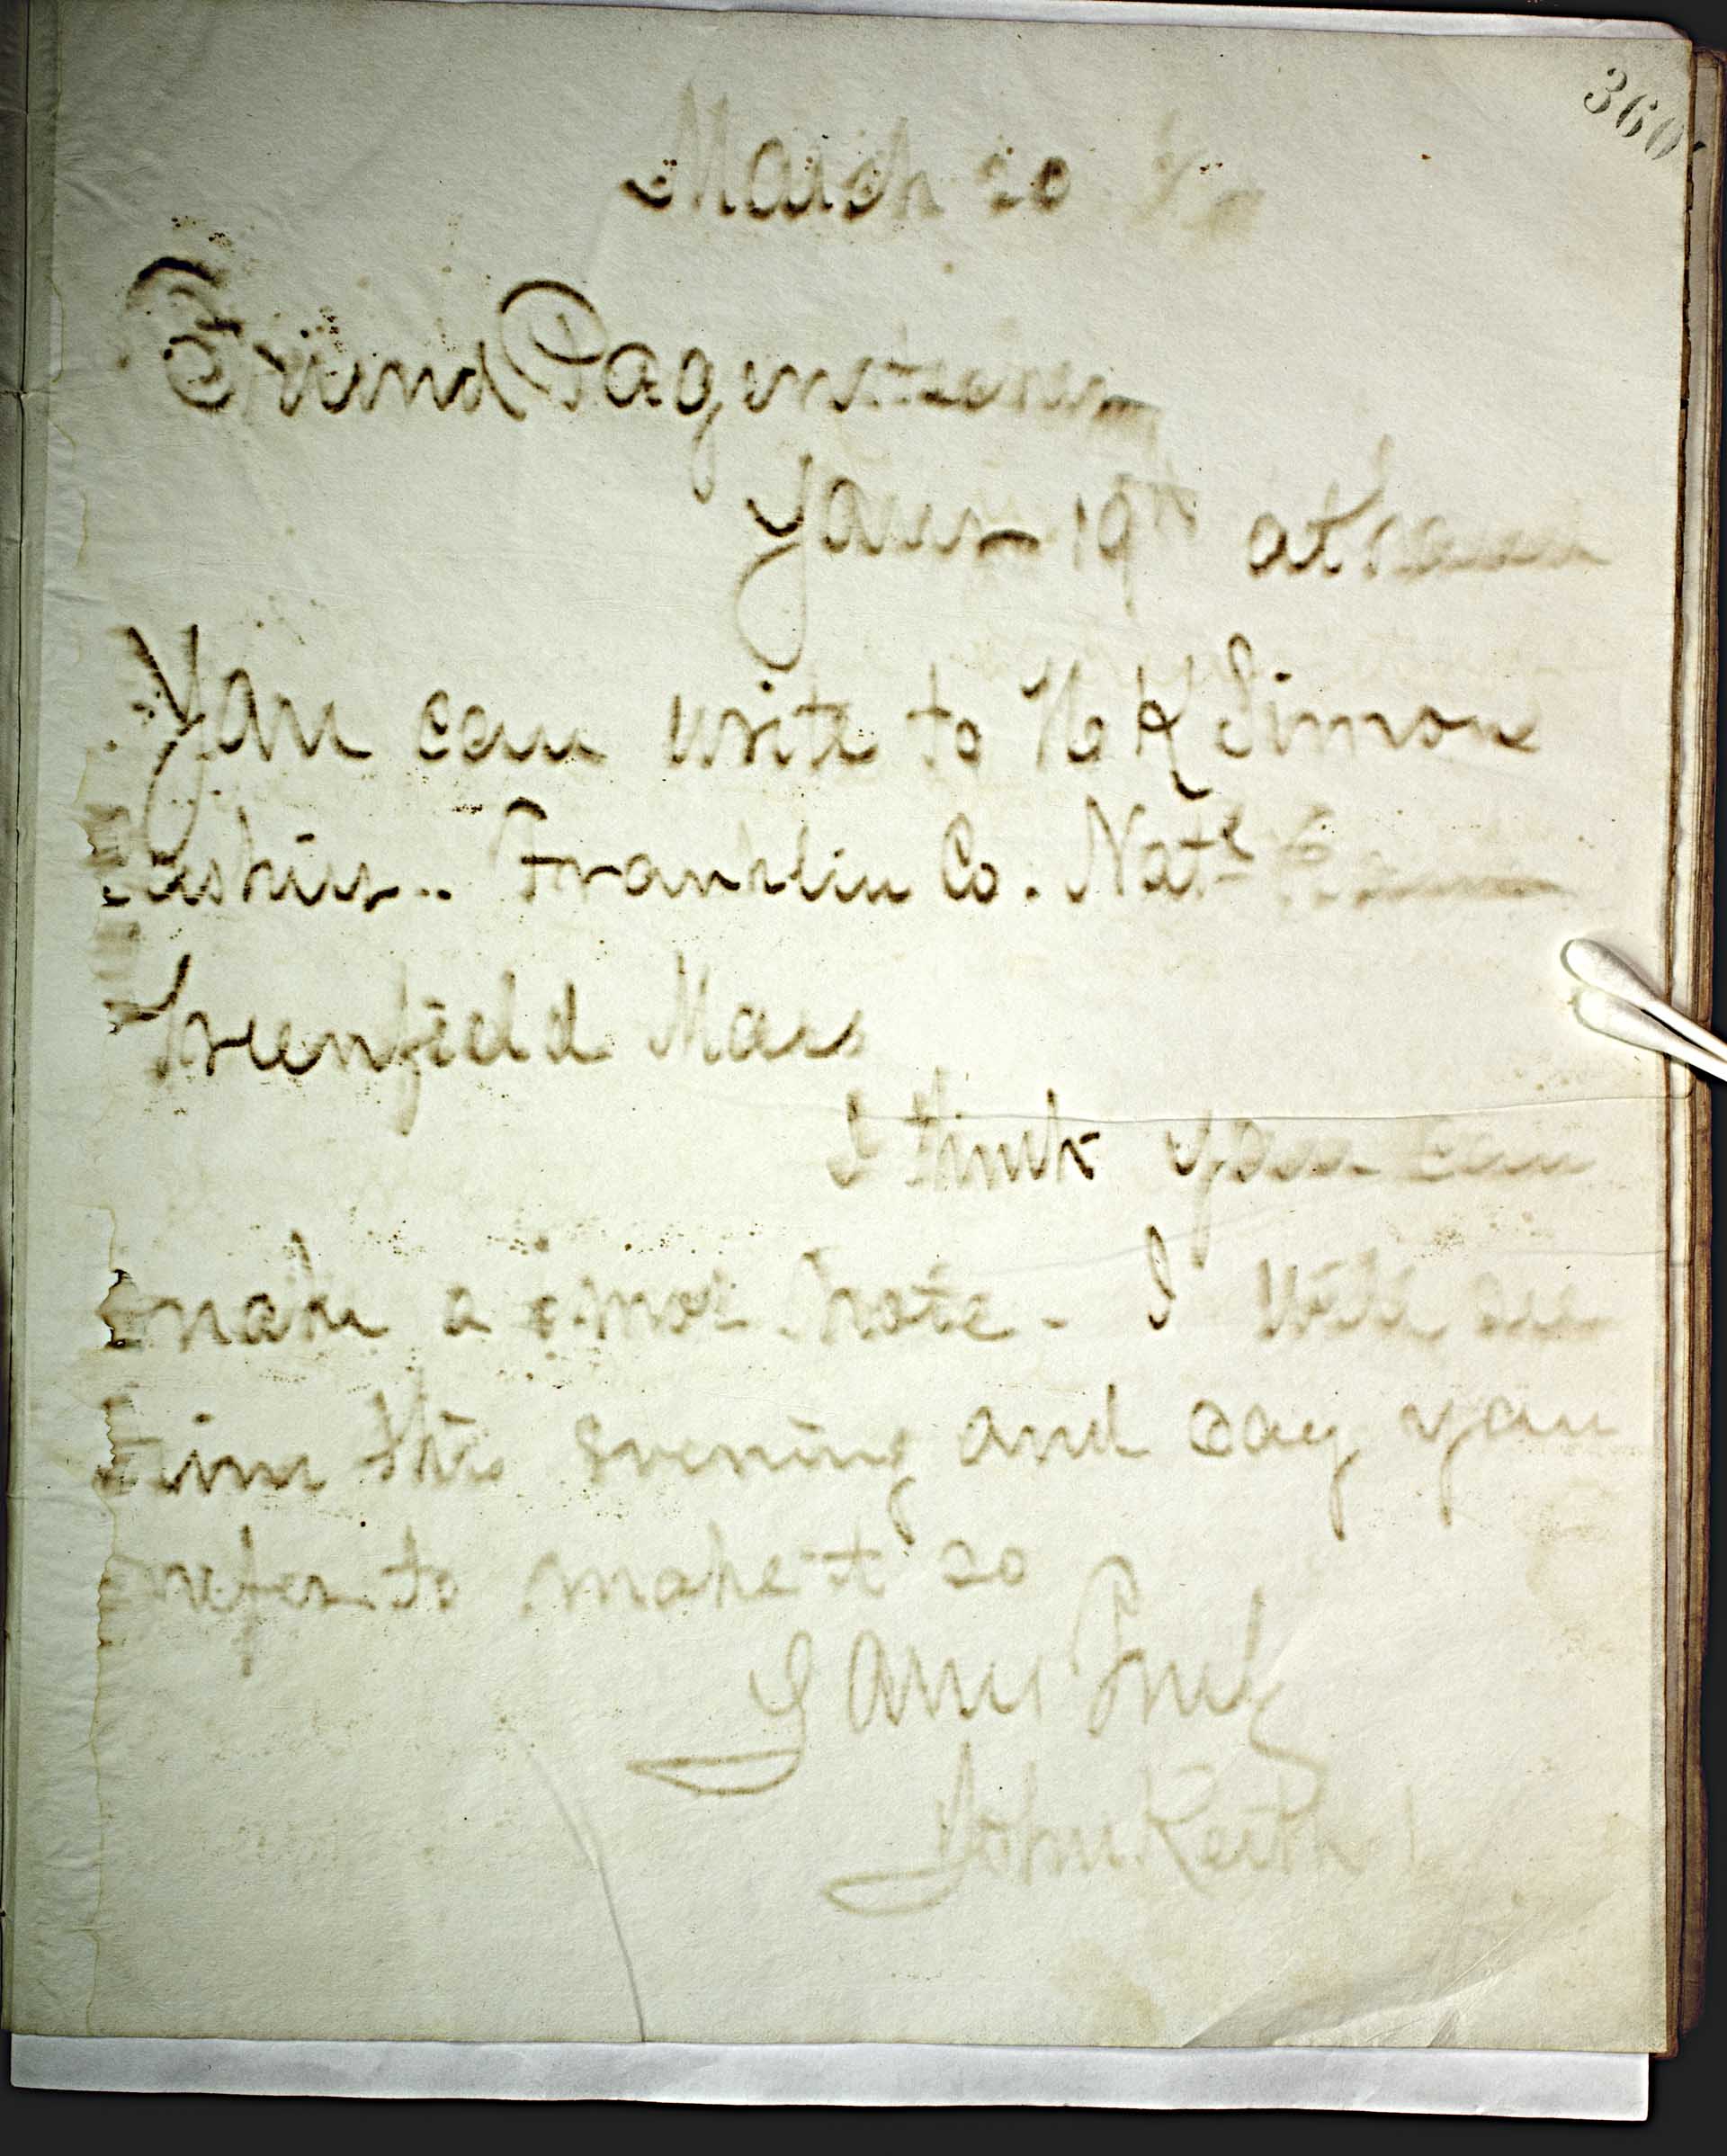 360
March 20
Friend Pagenstecher
Yours 19th at hand
You can write to H K Simons
Cashier.. Franklin Co. Natl Bank
Greenfield Mass
I think you can
make a 6 mos note - I will see
him this evening and say you
prefer to make it so
Yours Truly
John Keith